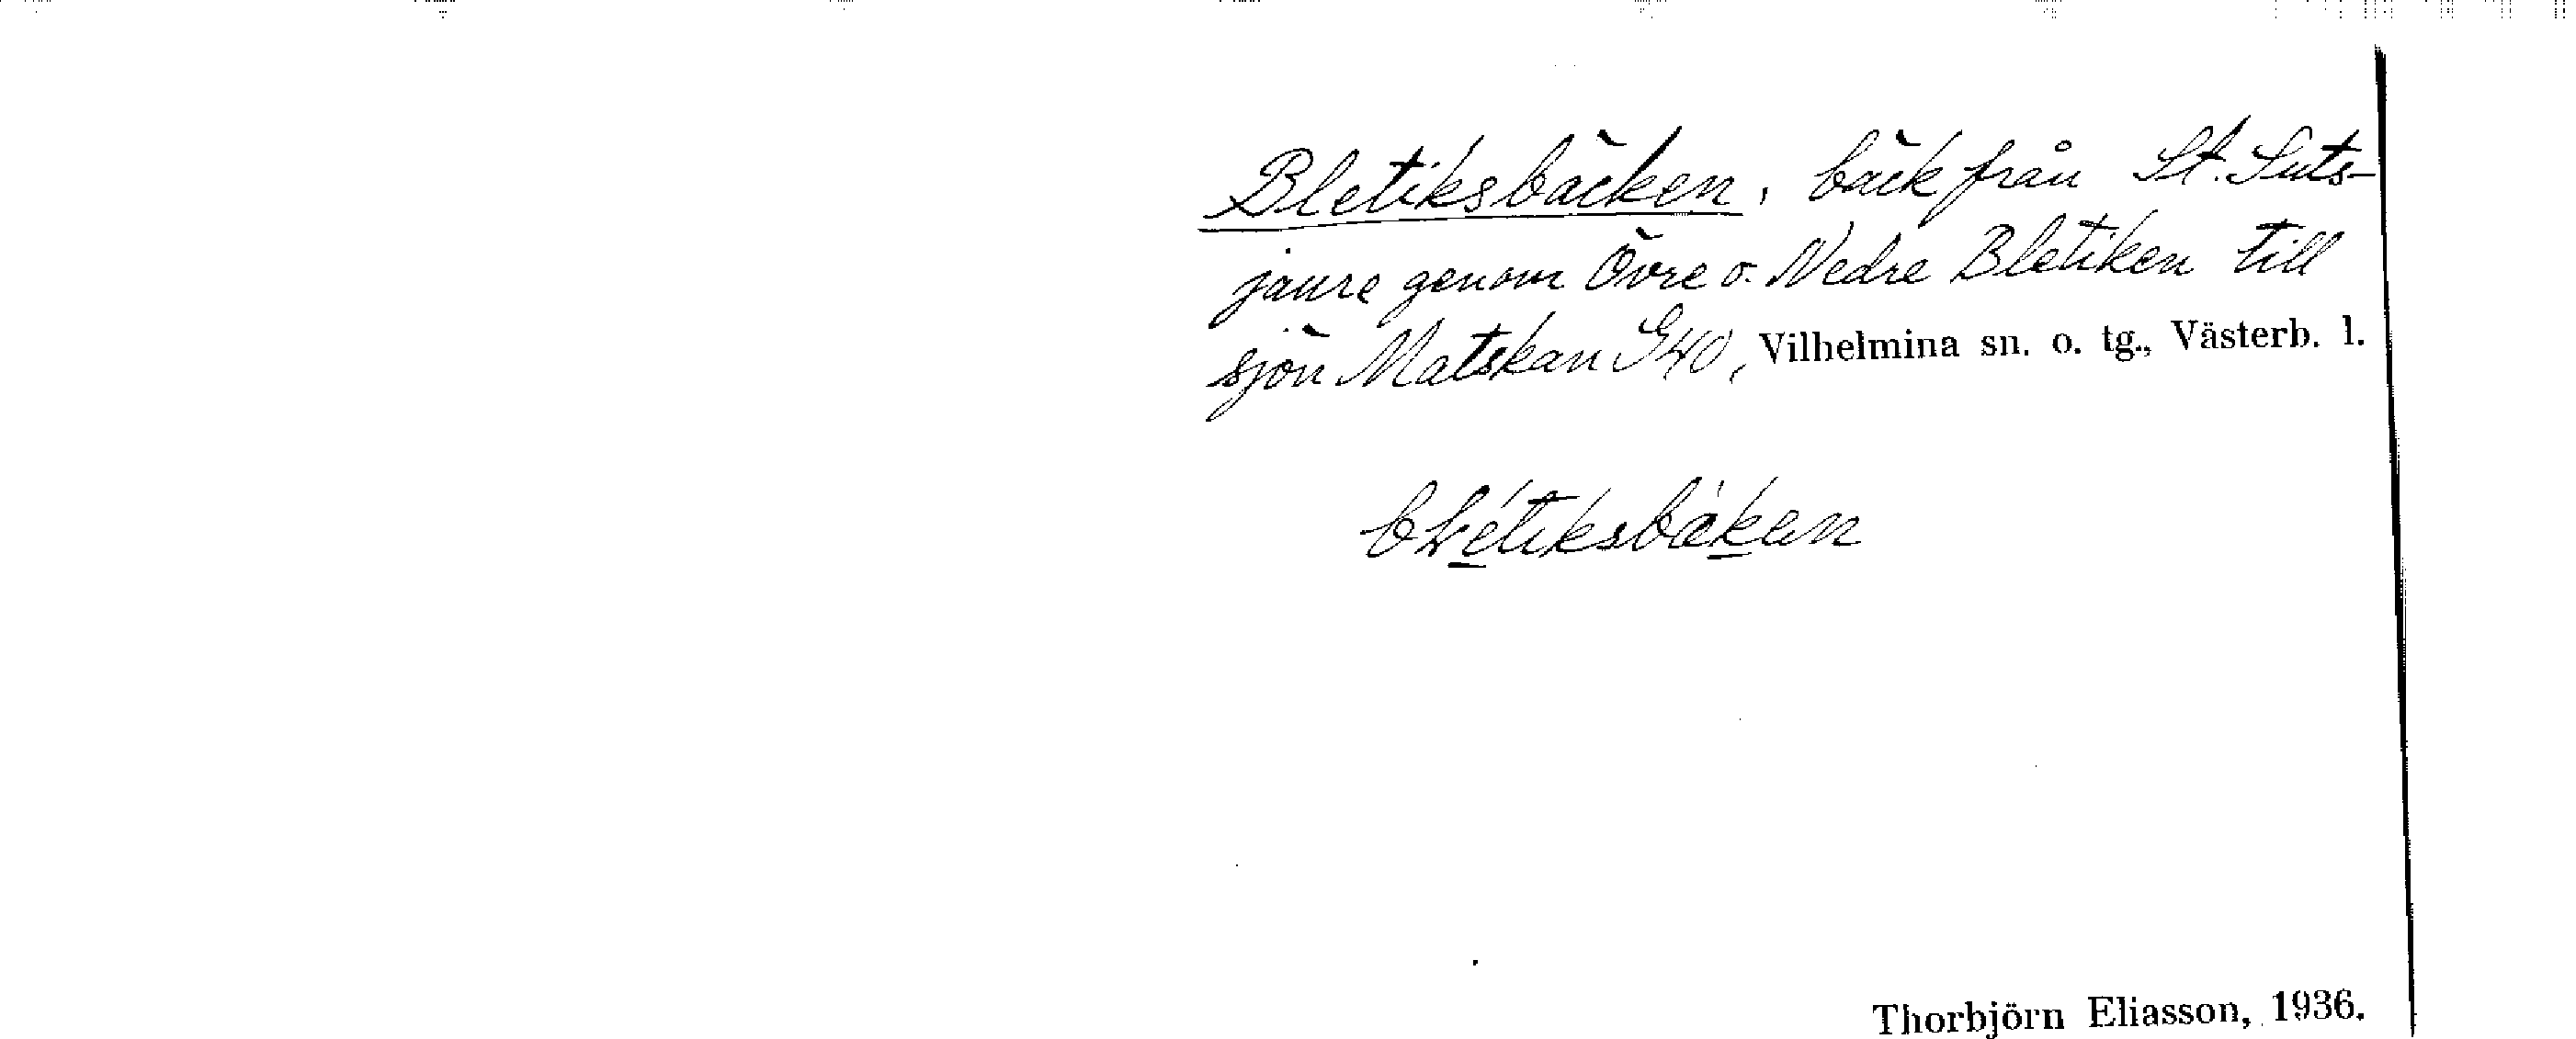 Bletiksbäcken, bäck från St. Suts-
jaure genom Övre o. Nedre Bletiken till
sjön Matskan G40, Vilhelmina sn. o. tg., Västerb. l.
Thorbjörn Eliasson, 1936.